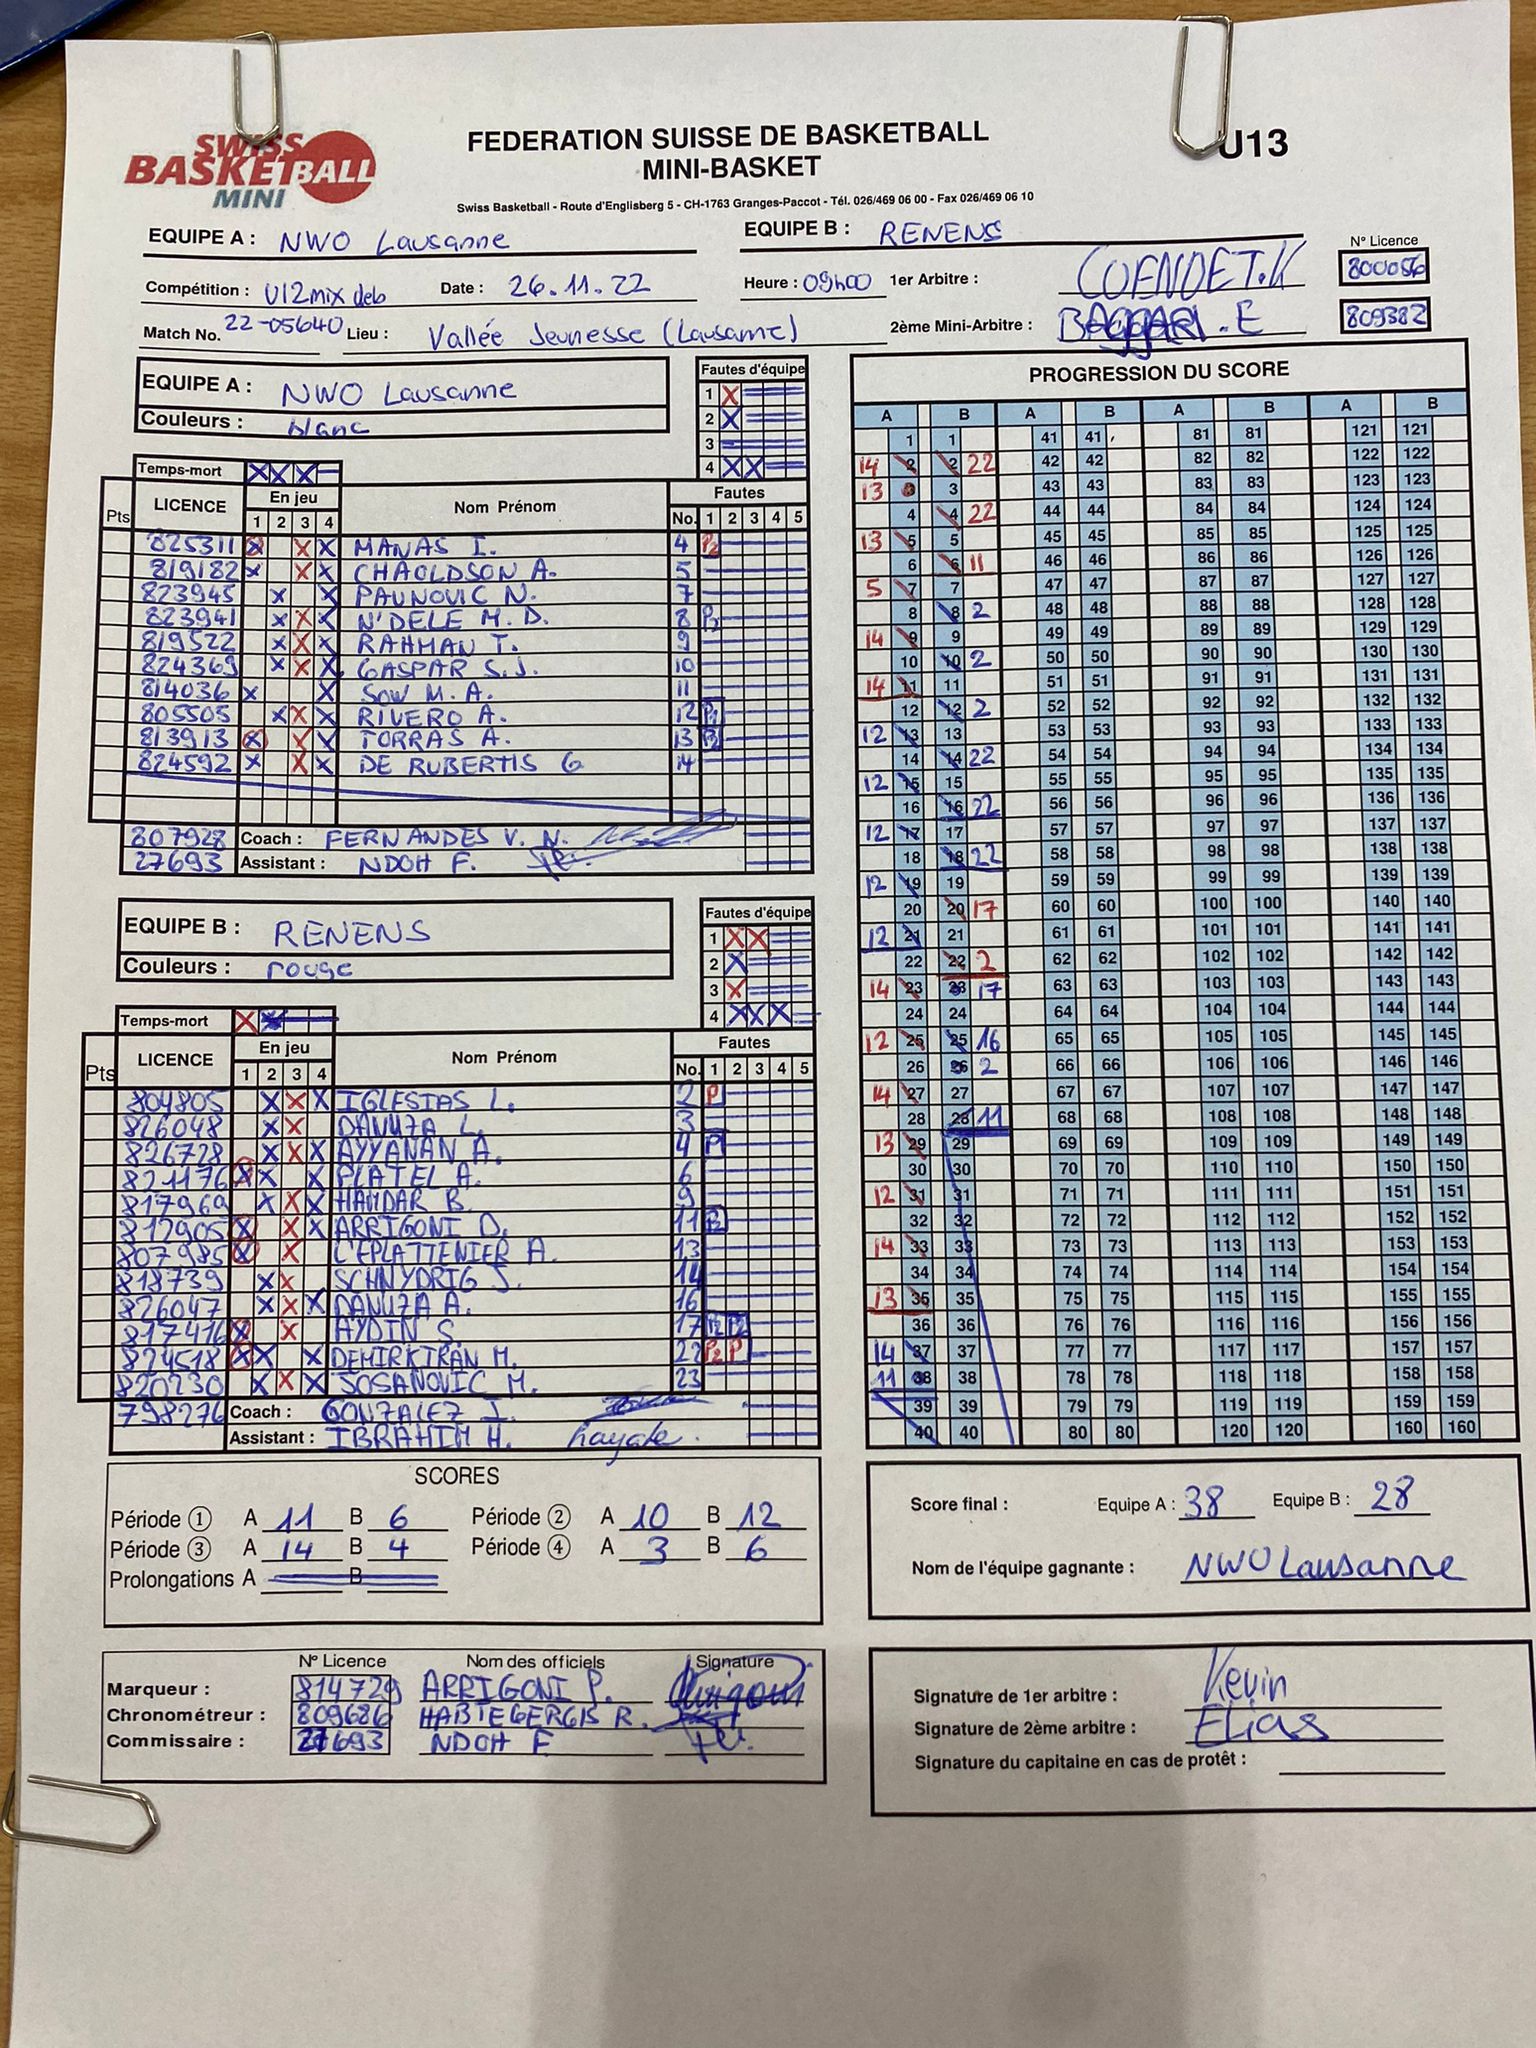 SWISS
BASKETBALL
MINI
FEDERATION SUISSE DE BASKETBALL
MINI-BASKET
U13
Swiss Basketball - Route d'Englisberg 5 - CH-1763 Granges-Paccot - Tél. 026/469 06 00 - Fax 026/469 06 10
EQUIPE A : NWO Lausanne EQUIPE B : RENENS
N° Licence
Compétition : U12mix deb Date : 26.11.22 Heure : 09h00 1er Arbitre : COENDET.K 800056
Match No. 22-05640 Lieu : Vallée Jeunesse (Lausanne) 2ème Mini-Arbitre : BAGGARI.E 809382
EQUIPE A : NWO Lausanne
Couleurs : blanc
Fautes d'équipe
1 X
2 X
3
4 X X
Temps-mort X X X
Pts LICENCE En jeu Nom Prénom Fautes
1 2 3 4 No. 1 2 3 4 5
825311 X X X MANAS I. 4 P2
819182 X X X CHAOLDSON A. 5
823945 X X PAUNOVIC N. 7
823941 X X X N'DELE M. D. 8
819522 X X X RAHMAN T. 9
824369 X X X GASPAR S.J. 10
814036 X X SOW M. A. 11
805505 X X X RIVERO A. 12
813913 X X X TORRAS A. 13
824592 X X X DE RUBERTIS G 14
807928 Coach : FERNANDES V. N.
27693 Assistant : NDOH F.
EQUIPE B : RENENS
Couleurs : rouge
Fautes d'équipe
1 X X
2 X
3 X
4 X X X
Temps-mort X
Pts LICENCE En jeu Nom Prénom Fautes
1 2 3 4 No. 1 2 3 4 5
804805 X X X IGLESIAS L. 2 P
826048 X X DANUZA L. 3
826728 X X X AYYANAN A. 4 P
821176 X X X PLATEL A. 6
817969 X X X HAMDAR B. 9
812905 X X X ARRIGONI D. 11 P2
807985 X X L'EPLATTENIER A. 13
818739 X X SCHNYDRIG J. 14
826047 X X X DANUZA A. 16
817416 X X AYDIN S. 17 P2 P2
824518 X X X DEMIRKIRAN M. 22 P2 P
820230 X X X JOSANOVIC M. 23
798276 Coach : GONZALEZ I.
Assistant : IBRAHIM H.
SCORES
Période 1 A 11 B 6 Période 2 A 10 B 12
Période 3 A 14 B 4 Période 4 A 3 B 6
Prolongations A B
N° Licence Nom des officiels Signature
Marqueur : 814729 ARRIGONI P.
Chronométreur : 809686 HABTEGERGIS R.
Commissaire : 27693 NDOH F
PROGRESSION DU SCORE
A B A B A B A B
1 1 41 41 81 81 121 121
14 2 2 22 42 42 82 82 122 122
13 3 3 43 43 83 83 123 123
4 4 22 44 44 84 84 124 124
13 5 5 45 45 85 85 125 125
6 6 11 46 46 86 86 126 126
5 7 7 47 47 87 87 127 127
8 8 2 48 48 88 88 128 128
14 9 9 49 49 89 89 129 129
10 10 2 50 50 90 90 130 130
14 11 11 51 51 91 91 131 131
12 12 2 52 52 92 92 132 132
12 13 13 53 53 93 93 133 133
14 14 22 54 54 94 94 134 134
12 15 15 55 55 95 95 135 135
16 16 22 56 56 96 96 136 136
12 17 17 57 57 97 97 137 137
18 18 22 58 58 98 98 138 138
12 19 19 59 59 99 99 139 139
20 20 17 60 60 100 100 140 140
12 21 21 61 61 101 101 141 141
22 22 2 62 62 102 102 142 142
14 23 23 17 63 63 103 103 143 143
24 24 64 64 104 104 144 144
12 25 25 16 65 65 105 105 145 145
26 26 2 66 66 106 106 146 146
14 27 27 67 67 107 107 147 147
28 28 11 68 68 108 108 148 148
13 29 29 69 69 109 109 149 149
30 30 70 70 110 110 150 150
12 31 31 71 71 111 111 151 151
32 32 72 72 112 112 152 152
14 33 33 73 73 113 113 153 153
34 34 74 74 114 114 154 154
13 35 35 75 75 115 115 155 155
36 36 76 76 116 116 156 156
14 37 37 77 77 117 117 157 157
11 38 38 78 78 118 118 158 158
39 39 79 79 119 119 159 159
40 40 80 80 120 120 160 160
Score final : Equipe A : 38 Equipe B : 28
Nom de l'équipe gagnante : NWO Lausanne
Signature de 1er arbitre : Kevin
Signature de 2ème arbitre : Elias
Signature du capitaine en cas de protêt :